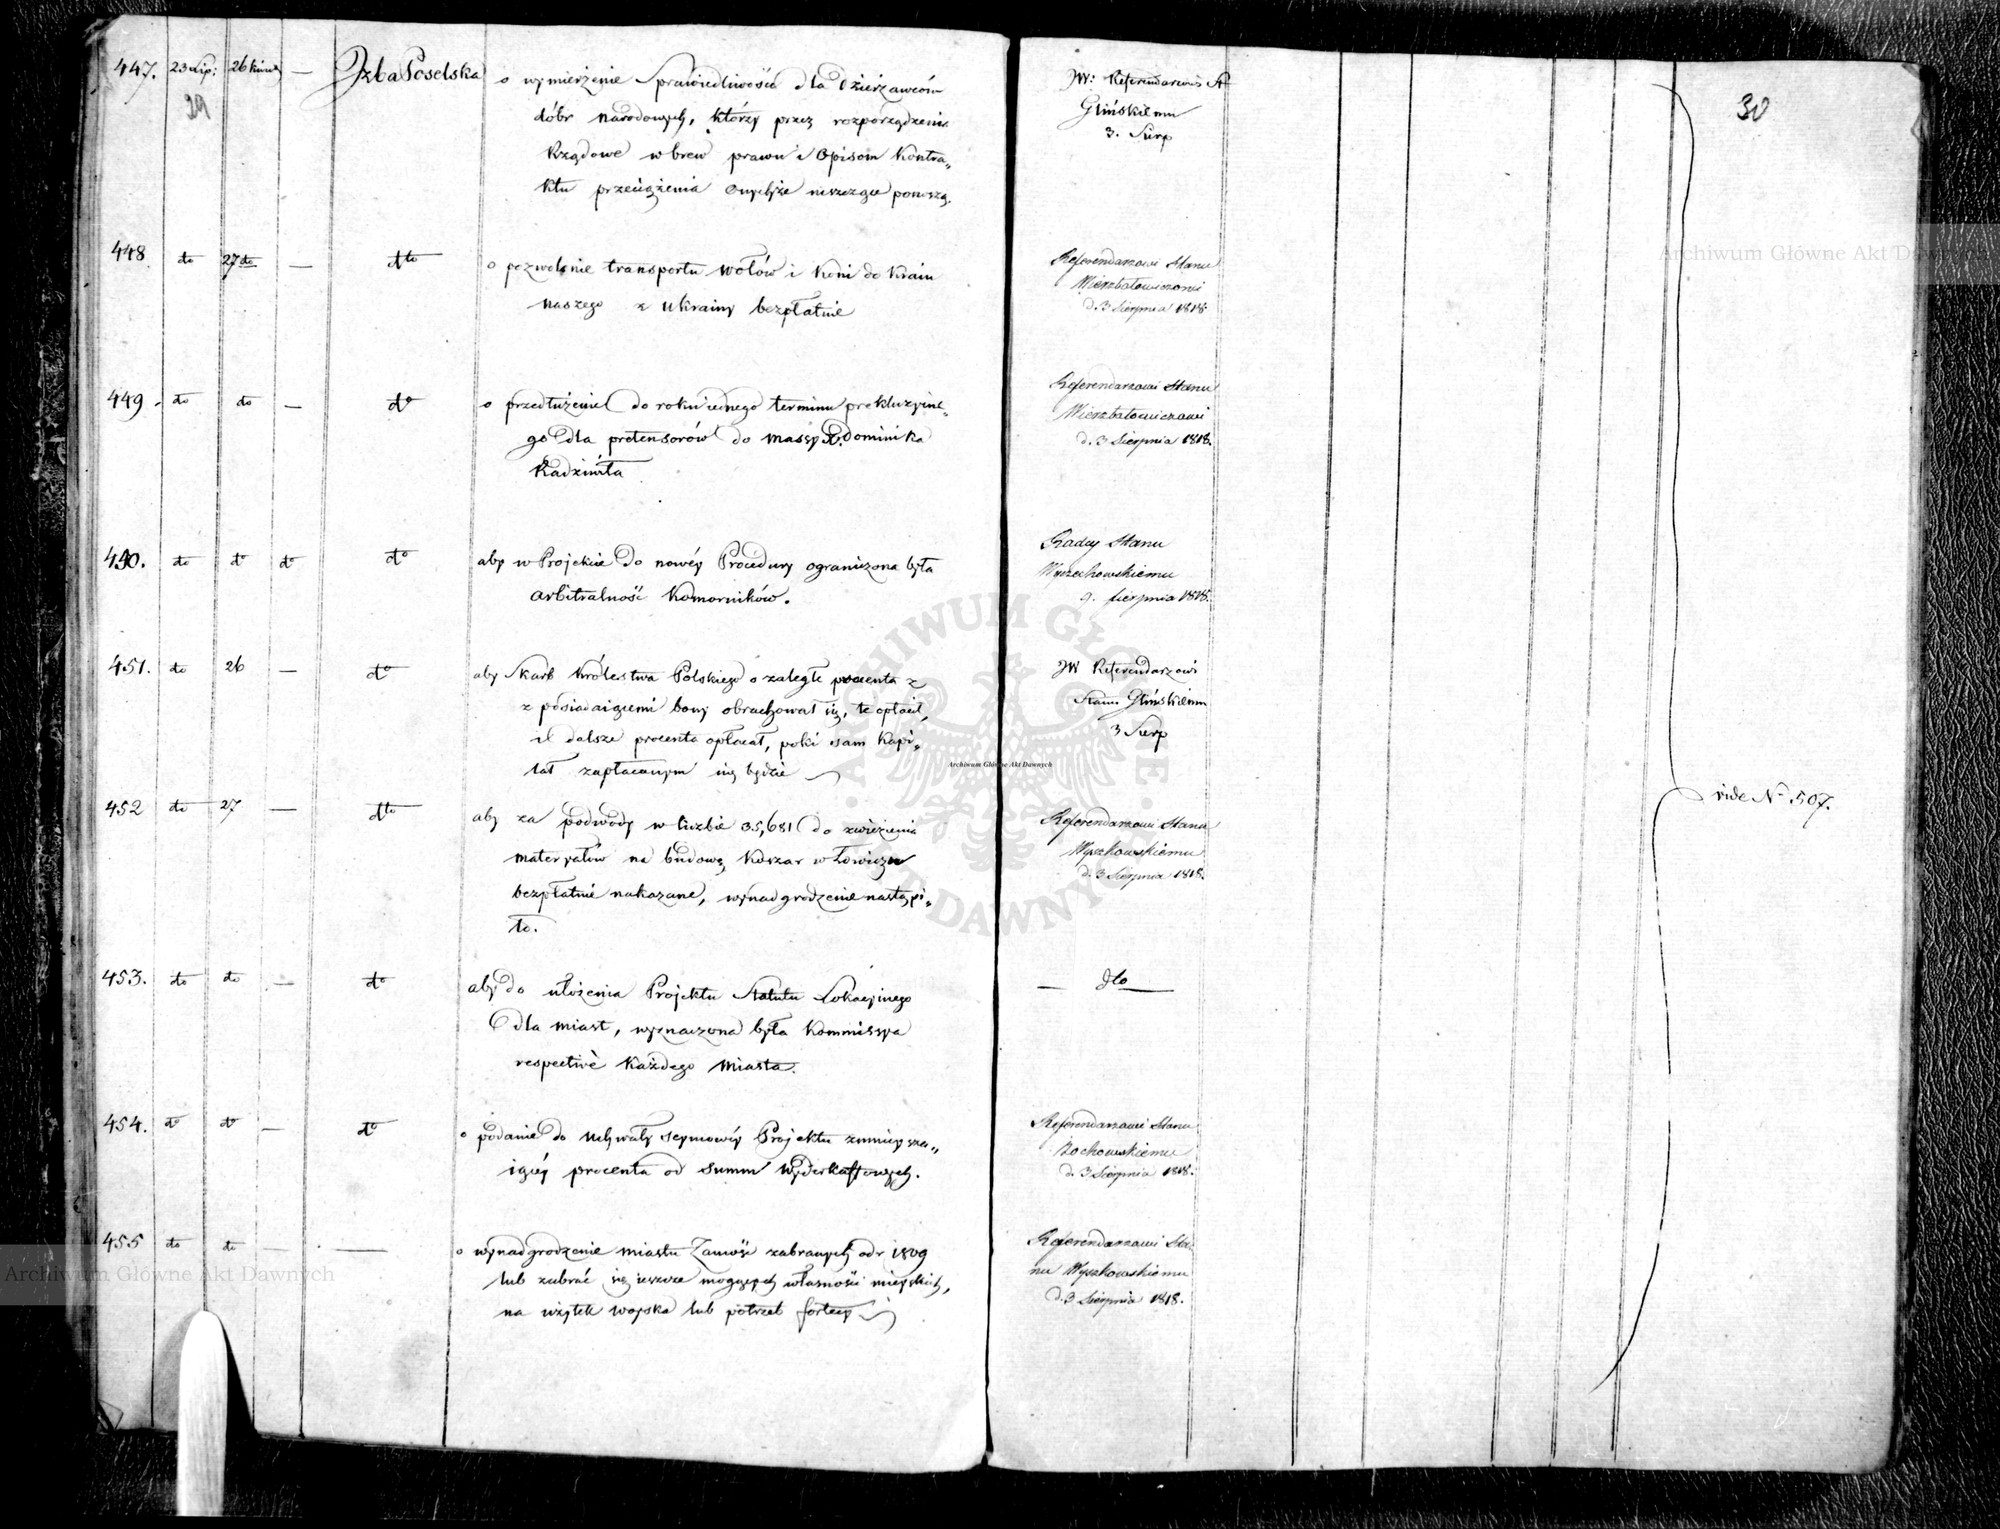 447. 23 Lip: 26 Kwiet — Izba Poselska o wymierzenie Sprawiedliwości dla Dzierżawców
29
dóbr narodowych, którzy przez rozporządzenia
Rządowe wbrew prawu i Opisom Kontra„
ktu przeciążenia Onychże nieszczęsne ponoszą.
JW: Referendarzowi St
Glińskiemu
3. Sierp
30
448 do 27 do — dto o pozwolenie transportu Wołów i Koni do Kraiu
naszego z Ukrainy bezpłatnie
Referendarzowi Stanu
Wierzbałowiczowi
d. 3 Sierpnia 1818
449. do do — do o przedłużenie do roku iednego terminu prekluzyine„
go dla pretensorów do massy X. Dominika
Radziwiła
Referendarzowi Stanu
Wierzbałowiczowi
d. 3 Sierpnia 1818.
450. do do do do aby w Projekcie do nowéy Procedury ograniczona była
arbitralność Komorników.
Radcy Stanu
Wyczechowskiemu
9. Sierpnia 1818.
451. do 26 — do aby Skarb Królestwa Polskiego o zaległe procenta z
z posiadaiącemi bony obrachował się, te opłacił,
i dalsze procenta opłacał, poki sam Kapi„
tał zapłaconym nie będzie
JW Referendarzowi
Stanu Glińskiemu
3 Sierp
452 do 27 — dto aby za podwody w liczbie 35,681 do zwiezienia
materyałów na budowę Koszar w Łowiczu
bezpłatnie nakazane, wynadgrodzenie nastąpi„
ło.
Referendarzowi Stanu
Wyszkowskiemu
d. 3 Sierpnia 1818.
vide No 507.
453. do do — do aby do ułożenia Projektu Statutu Lokacyinego
dla miast, wyznaczona była Kommissya
respective Każdego Miasta.
— dto —
454. do do — do o podanie do Uchwały Seymowéy Projektu zmnieysza„
iącéy procenta od Summ Wyderkaffowych.
Referendarzowi Stanu
Żochowskiemu
d. 3 Sierpnia 1818.
455 do do — — o wynadgrodzenie miastu Zamość zabranych od r 1809
lub zabrać się ieszcze mogących własności mieyskich,
na użytek woyska lub potrzeb fortecy
Referendarzowi Sta
nu Wyszkowskiemu
d. 3 Sierpnia 1818.
Archiwum Główne Akt Dawnych
Archiwum Główne Akt Dawnych
Archiwum Główne Akt Dawnych
ARCHIWUM GŁÓWNE
AKT DAWNYCH